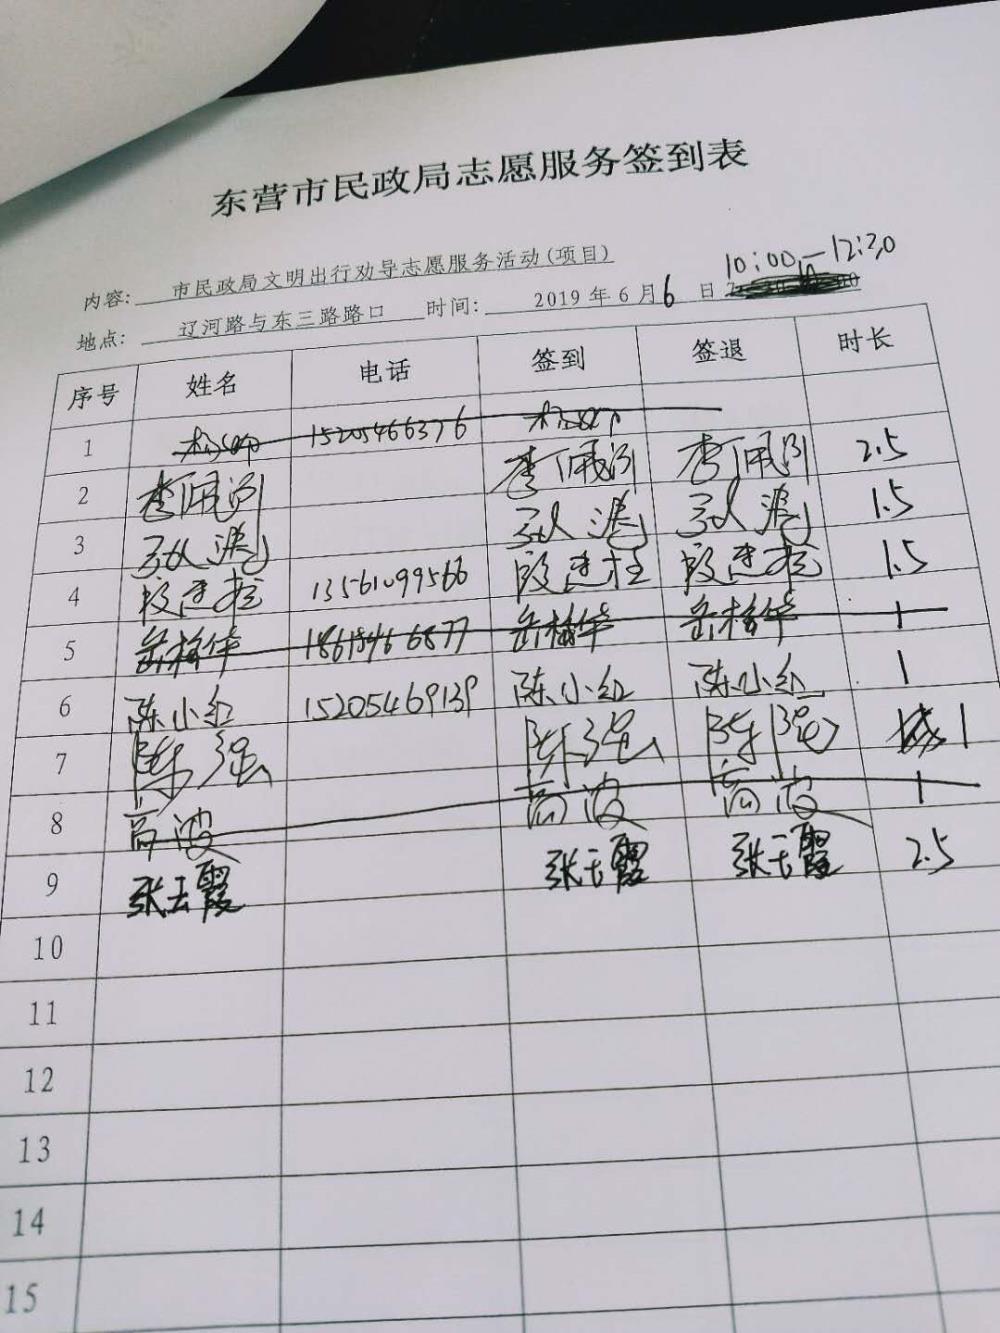 东营市民政局志愿服务签到表
内容: 市民政局文明出行劝导志愿服务活动(项目)
地点: 辽河路与东三路路口 时间: 2019年6月6日 10:00—12:30
序号 姓名 电话 签到 签退 时长
1 15205466376
2 李佩 李佩 李佩 2.5
3 1.5
4 段建 13561099566 段建 段建 1.5
5 岳梅华 18615466877 岳梅华 岳梅华 1
6 陈小红 15205469139 陈小红 陈小红 1
7 陈强 陈强 陈强 1
8 高波 高波 高波 1
9 张云霞 张云霞 张云霞 2.5
10
11
12
13
14
15